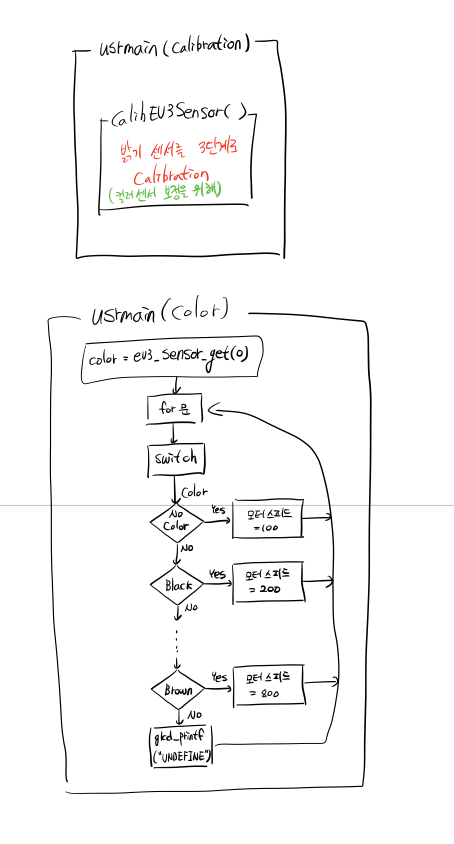 usrmain(Calibration)
CalibEV3Sensor( )
밝기 센서를 3단계로
Calibration
(컬러센서 보정을 위해)
usrmain(Color)
color = ev3_sensor_get(0)
for문
switch
Color
No
Color
Yes
모터스피드
=100
No
Black
Yes
모터스피드
= 200
No
Brown
Yes
모터스피드
= 800
No
glcd_printf
("UNDEFINE")